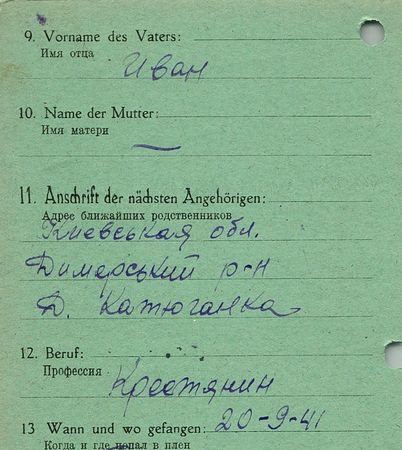 9. Vorname des Vaters:
Имя отца
Иван
10. Name der Mutter:
Имя матери
—
11. Anschrift der nächsten Angehörigen:
Адрес ближайших родственников
Киевськая обл.
Димерський р-н
Д. Катюганка
12. Beruf:
Профессия
Крестянин
13 Wann und wo gefangen: 20-9-41
Когда и где попал в плен